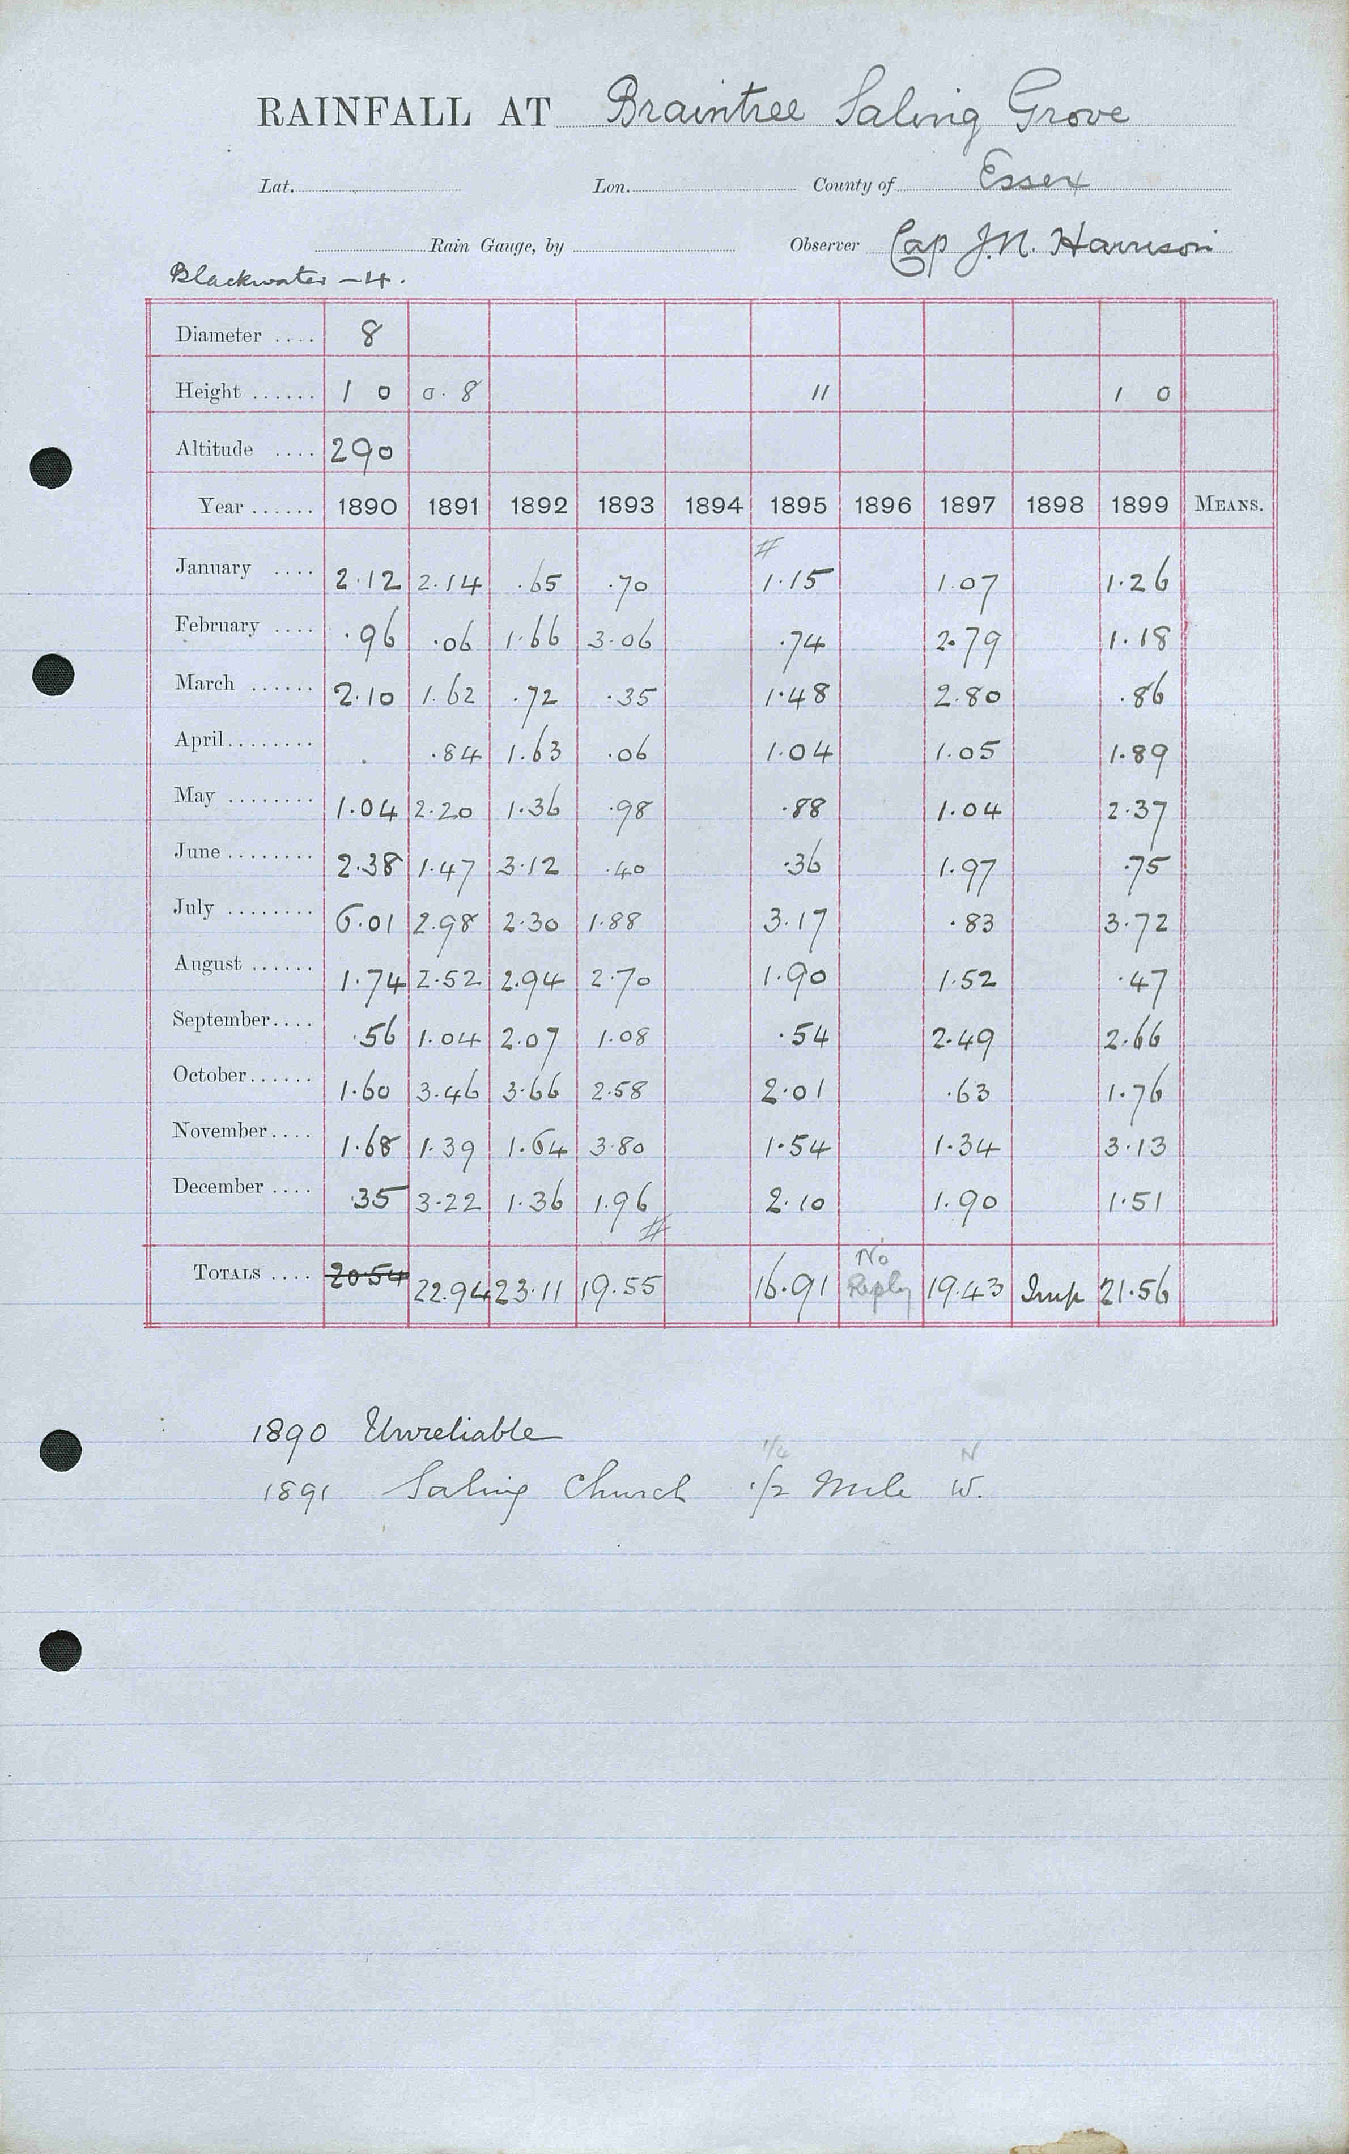 RAINFALL AT Braintree Saling Grove
Lat. Lon. County of Essex
Rain Gauge, by Observer Cap J.N. Harrison
Blackwater - 4.
Diameter .... 8
Height ...... 1 0 0.8 11 1 0
Altitude .... 290
Year ...... 1890 1891 1892 1893 1894 1895 1896 1897 1898 1899 MEANS.
January .... 2.12 2.14 .65 .70 # 1.15 1.07 1.26
February .... .96 .06 1.66 3.06 .74 2.79 1.18
March ...... 2.10 1.62 .72 .35 1.48 2.80 .86
April ........ . .84 1.63 .06 1.04 1.05 1.89
May ........ 1.04 2.20 1.36 .98 .88 1.04 2.37
June ........ 2.38 1.47 3.12 .40 .36 1.97 .75
July ........ 6.01 2.98 2.30 1.88 3.17 .83 3.72
August ...... 1.74 2.52 2.94 2.70 1.90 1.52 .47
September.... .56 1.04 2.07 1.08 .54 2.49 2.66
October...... 1.60 3.46 3.66 2.58 2.01 .63 1.76
November.... 1.68 1.39 1.64 3.80 1.54 1.34 3.13
December .... .35 3.22 1.36 1.96 # 2.10 1.90 1.51
TOTALS .... 20.54 22.94 23.11 19.55 16.91 No Reply 19.43 Imp 21.56
1890 Unreliable
1/4 N
1891 Saling Church 1/2 Mile W.